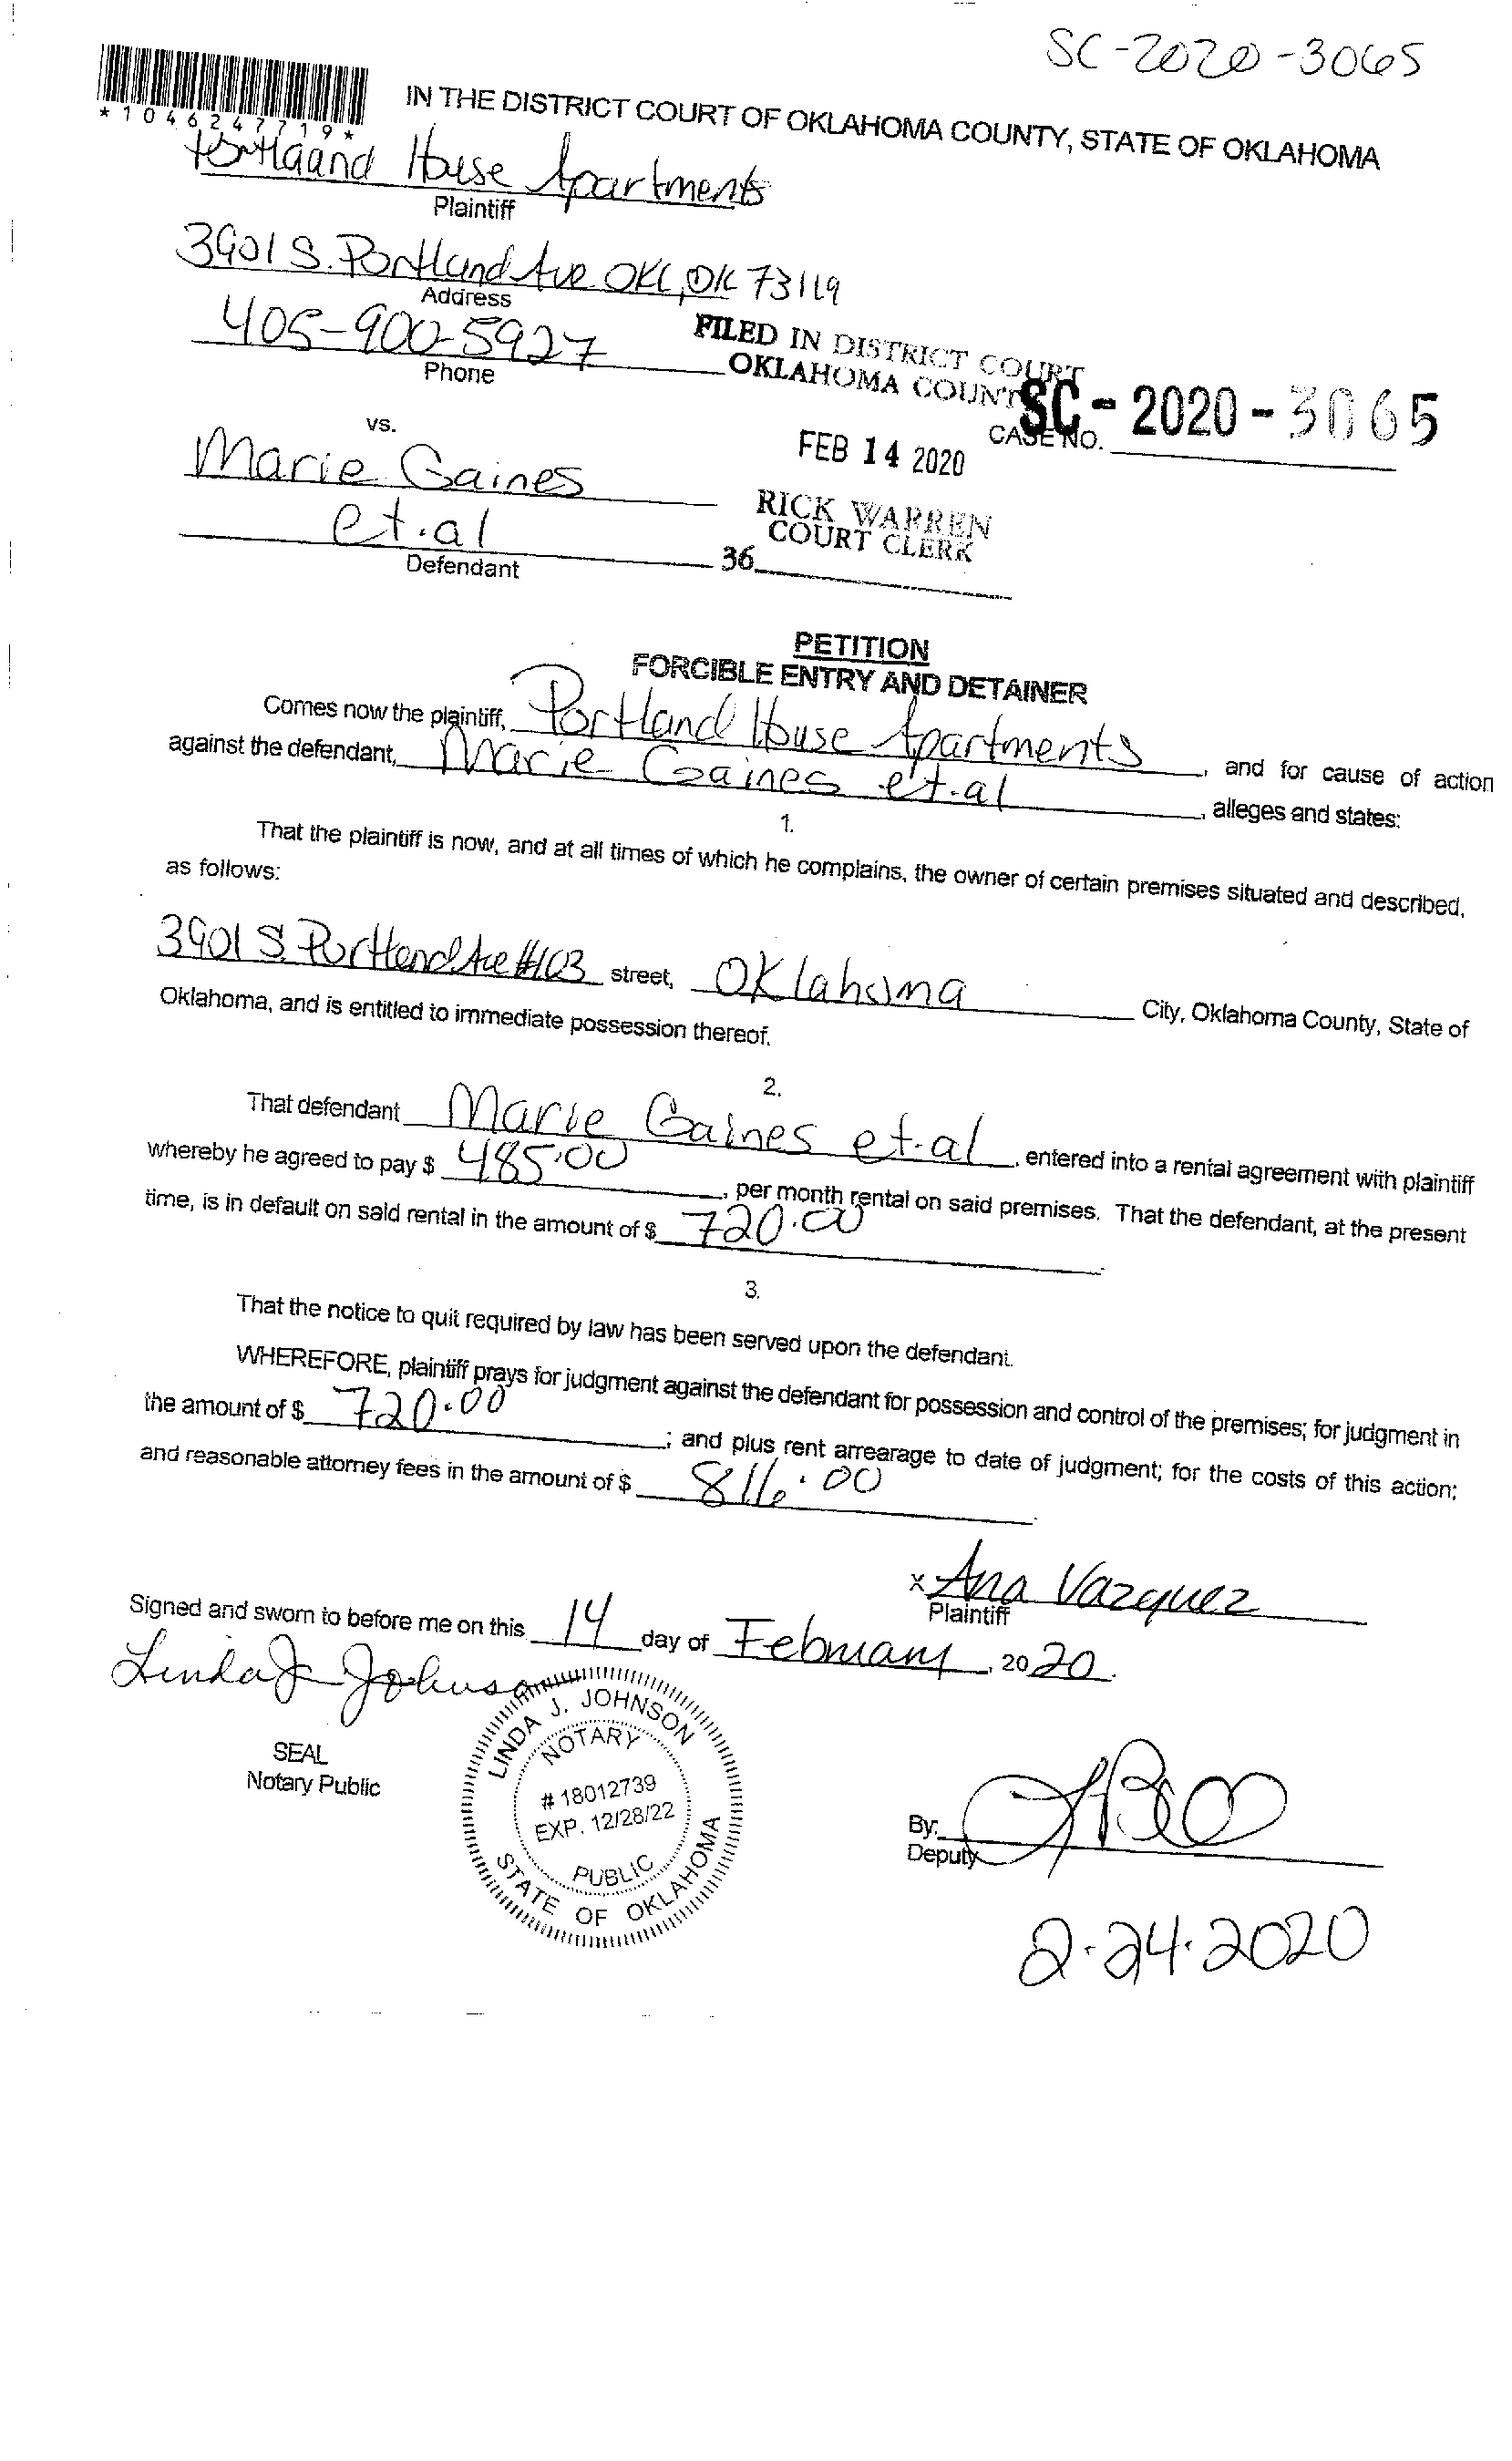 SC-2020-3065
*1046247719*
IN THE DISTRICT COURT OF OKLAHOMA COUNTY, STATE OF OKLAHOMA
Portlaand House Apartments
Plaintiff
3901 S. Portland Ave OKC, OK 73119
Address
405-900-5927
Phone
FILED IN DISTRICT COURT
OKLAHOMA COUNTY
SC-2020-3065
CASE NO.
vs.
FEB 14 2020
Marie Gaines
et.al
Defendant
RICK WARREN
COURT CLERK
36
PETITION
FORCIBLE ENTRY AND DETAINER
Comes now the plaintiff, Portland House Apartments, and for cause of action
against the defendant, Marie Gaines et.al, alleges and states:
1.
That the plaintiff is now, and at all times of which he complains, the owner of certain premises situated and described,
as follows:
3901 S. Portland Ave #103 street, Oklahoma City, Oklahoma County, State of
Oklahoma, and is entitled to immediate possession thereof.
2.
That defendant Marie Gaines et.al, entered into a rental agreement with plaintiff
whereby he agreed to pay $ 485.00, per month rental on said premises. That the defendant, at the present
time, is in default on said rental in the amount of $ 720.00.
3.
That the notice to quit required by law has been served upon the defendant.
WHEREFORE, plaintiff prays for judgment against the defendant for possession and control of the premises; for judgment in
the amount of $ 720.00; and plus rent arrearage to date of judgment; for the costs of this action;
and reasonable attorney fees in the amount of $ 816.00.
x Ana Vazquez
Plaintiff
Signed and sworn to before me on this 14 day of February, 2020.
Linda J Johnson
SEAL
Notary Public
LINDA J. JOHNSON
NOTARY
# 18012739
EXP. 12/28/22
PUBLIC
STATE OF OKLAHOMA
By:
Deputy
2.24.2020